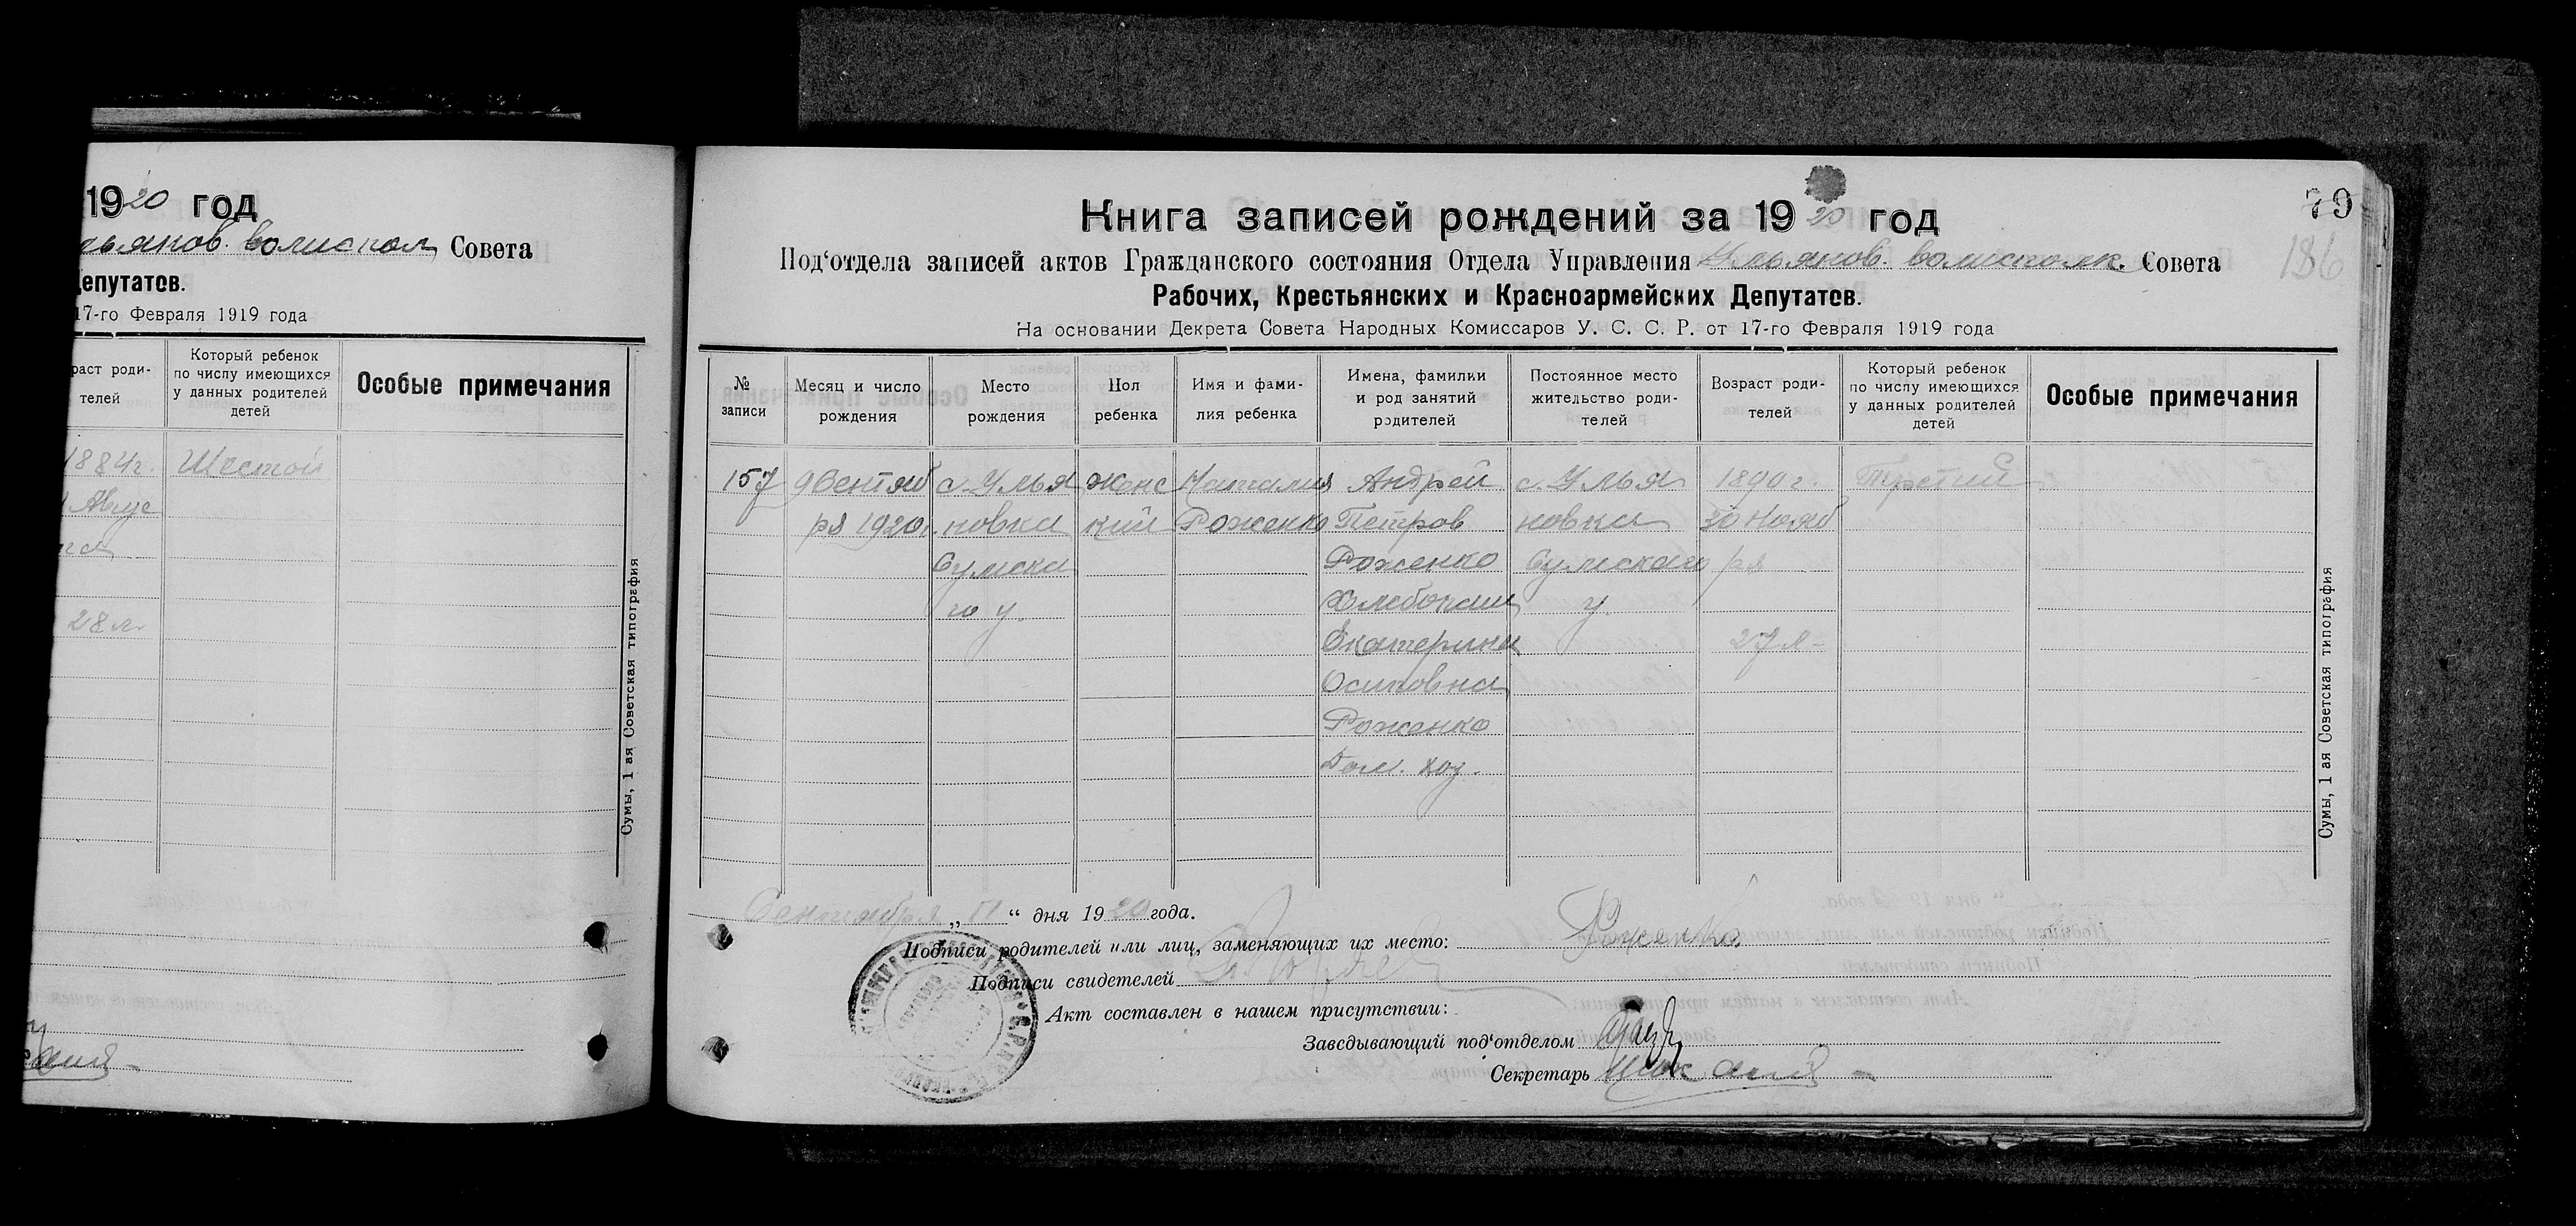 1920 год
льянов. волиспол Совета
Депутатов.
17-го Февраля 1919 года
раст роди-
телей
Который ребенок
по числу имеющихся
у данных родителей
детей
Особые примечания
1884г. Шестой
Авгус
та
28 л.
Сумы, 1 ая Советская типография
79
186
Книга записей рождений за 1920 год
Под'отдела записей актов Гражданского состояния Отдела Управления Ульянов. волисполк. Совета
Рабочих, Крестьянских и Красноармейских Депутатов.
На основании Декрета Совета Народных Комиссаров У. С. С. Р. от 17-го Февраля 1919 года
№
записи
Месяц и число
рождения
Место
рождения
Пол
ребенка
Имя и фами-
лия ребенка
Имена, фамилии
и род занятий
родителей
Постоянное место
жительство роди-
телей
Возраст роди-
телей
Который ребенок
по числу имеющихся
у данных родителей
детей
Особые примечания
157 9 Сентяб с. Улья женс Наталия Андрей с. Улья 1890 г. Третий
ря 1920г. новка кий Роженко Петров новка 30 Нояб
Сумска Роженко Сумскаго ря
го у. Хлебопаш у.
Екатерина 27 л
Осиповна
Роженко
Дом. хоз.
Сумы, 1 ая Советская типография
Сентября „11“ дня 1920 года.
Подписи родителей или лиц, заменяющих их место: Роженко
Подписи свидетелей
Акт составлен в нашем присутствии:
Заведывающий под'отделом
Секретарь